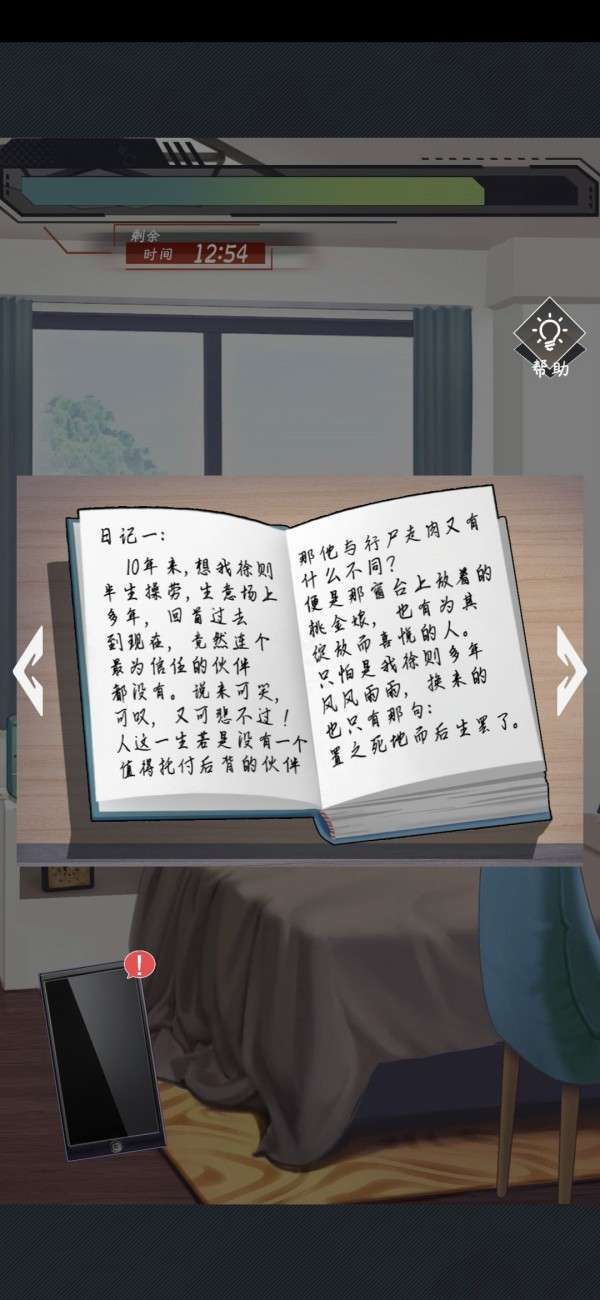 剩余
时间 12:54
帮助
日记一:
10年来,想我徐则
半生操劳,生意场上
多年,回首过去
到现在,竟然连个
最为信任的伙伴
都没有。说来可笑,
可叹,又可悲不过!
人这一生若是没有一个
值得托付后背的伙伴
那他与行尸走肉又有
什么不同?
便是那窗台上放着的
姚金娘,也有为其
绽放而喜悦的人。
只怕是我徐则多年
风风雨雨,换来的
也只有那句:
置之死地而后生罢了。
!